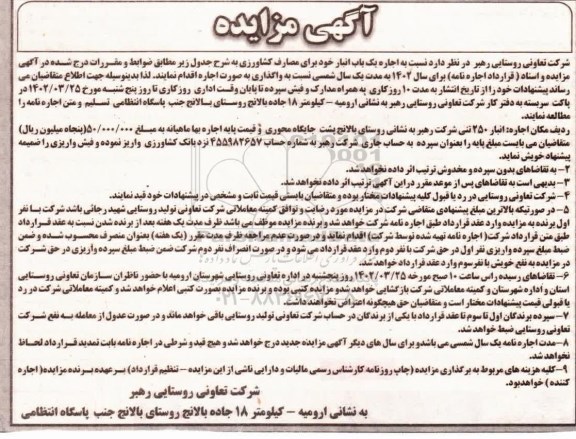 آگهی مزایده
شرکت تعاونی روستایی رهبر در نظر دارد نسبت به اجاره یک باب انبار خود برای مصارف کشاورزی به شرح جدول زیر مطابق ضوابط و مقررات درج شده در آگهی
مزایده و اسناد (قرارداد اجاره نامه) برای سال ۱۴۰۲ به مدت یک سال شمسی نسبت به واگذاری به صورت اجاره اقدام نمایند. لذا بدینوسیله جهت اطلاع متقاضیان می
رساند پیشنهادات خود را از تاریخ انتشار به مدت ۱۰ روز کاری به همراه مدارک و فیش سپرده تا پایان وقت اداری روز کاری تا روز پنج شنبه مورخ ۱۴۰۲/۰۳/۲۵ در
پاکت سربسته به دفتر کار شرکت تعاونی روستایی رهبر به نشانی ارومیه - کیلومتر ۱۸ جاده بالانج روستای بالانج جنب پاسگاه انتظامی تسلیم و متن اجاره نامه را
مطالعه نمایند.
ردیف مکان اجاره: انبار ۲۵۰ تنی شرکت رهبر به نشانی روستای بالانج پشت جایگاه محوری و قیمت پایه اجاره بها ماهیانه به مبلغ ۵۰/۰۰۰/۰۰۰ (پنجاه میلیون ریال)
متقاضیان می بایست مبلغ پایه را بعنوان سپرده به حساب جاری شرکت رهبر به شماره حساب ۴۵۵۹۸۲۶۵۷ نزد بانک کشاورزی واریز نموده و فیش واریزی را ضمیمه
پیشنهاد خویش نماید.
۲- به تقاضاهای بدون سپرده و مخدوش ترتیب اثر داده نخواهد شد.
۳- بدیهی است به تقاضاهای پس از موعد مقرر در این آگهی ترتیب اثر داده نخواهد شد.
۴- شرکت تعاونی روستایی در رد یا قبول کلیه پیشنهادات مختار بوده و متقاضیان بایستی قیمت ثابت و مشخص در پیشنهادات خود قید نمایند.
۵- در صورتیکه بالاترین مبلغ پیشنهادی متقاضی شرکت در مزایده مورد رضایت و توافق کمیته معاملاتی شرکت تعاونی تولید روستایی شهید رجائی باشد شرکت با نفر
اول برنده به مزایده وارد قرارداد طبق اجاره نامه شرکت خواهد شد و برنده مزایده موظف می باشد ظرف مدت یک هفته بعد از برنده شدن نسبت به عقد قرارداد
طبق متن قرارداد شرکت (اجاره نامه تهیه شده توسط شرکت) اقدام نماید و در صورت عدم مراجعه ظرف مدت مقرر (یک هفته) بعنوان منصرف محسوب شده و ضمن
ضبط مبلغ سپرده واریزی نفر اول در حق شرکت با نفر دوم وارد عقد قرارداد می شود و در صورت انصراف نفر دوم شرکت ضمن ضبط مبلغ سپرده واریزی در حق شرکت
در مزایده به نفع خویش با نفر سوم وارد عقد قرارداد خواهد شد.
۶- تقاضاهای رسیده راس ساعت ۱۰ صبح مورخه ۱۴۰۲/۰۳/۲۵ روز پنجشنبه در اداره تعاونی روستایی شهرستان ارومیه با حضور ناظران سازمان تعاونی روستایی
استان و اداره شهرستان و کمیته معاملاتی شرکت بازگشایی خواهد شد و مزایده کتبی بوده و برنده مزایده بصورت کتبی اعلام خواهد شد و کمیته معاملاتی شرکت در رد
یا قبولی قیمت پیشنهادات مختار است و متقاضیان حق هیچگونه اعتراض نخواهند داشت.
۷- سپرده برندگان اول تا سوم تا عقد قرارداد با یکی از برندگان در حساب شرکت تعاونی تولید روستایی باقی خواهد ماند و در صورت عدول از معامله به نفع شرکت
تعاونی روستایی ضبط خواهد شد.
۸- مدت اجاره نامه یک سال شمسی می باشد و برای سال های دیگر آگهی مزایده جدید درج خواهد شد و هیچ قید و شرطی در اجاره نامه بابت تمدید قرارداد لحاظ
نخواهد شد.
۹- کلیه هزینه های مربوط به برگذاری مزایده (چاپ روزنامه کارشناس رسمی مالیات و دارایی ناشی از این مزایده - تنظیم قرارداد) بر عهده برنده مزایده (اجاره
کننده) خواهد بود.
شرکت تعاونی روستایی رهبر
به نشانی ارومیه - کیلومتر ۱۸ جاده بالانج روستای بالانج جنب پاسگاه انتظامی